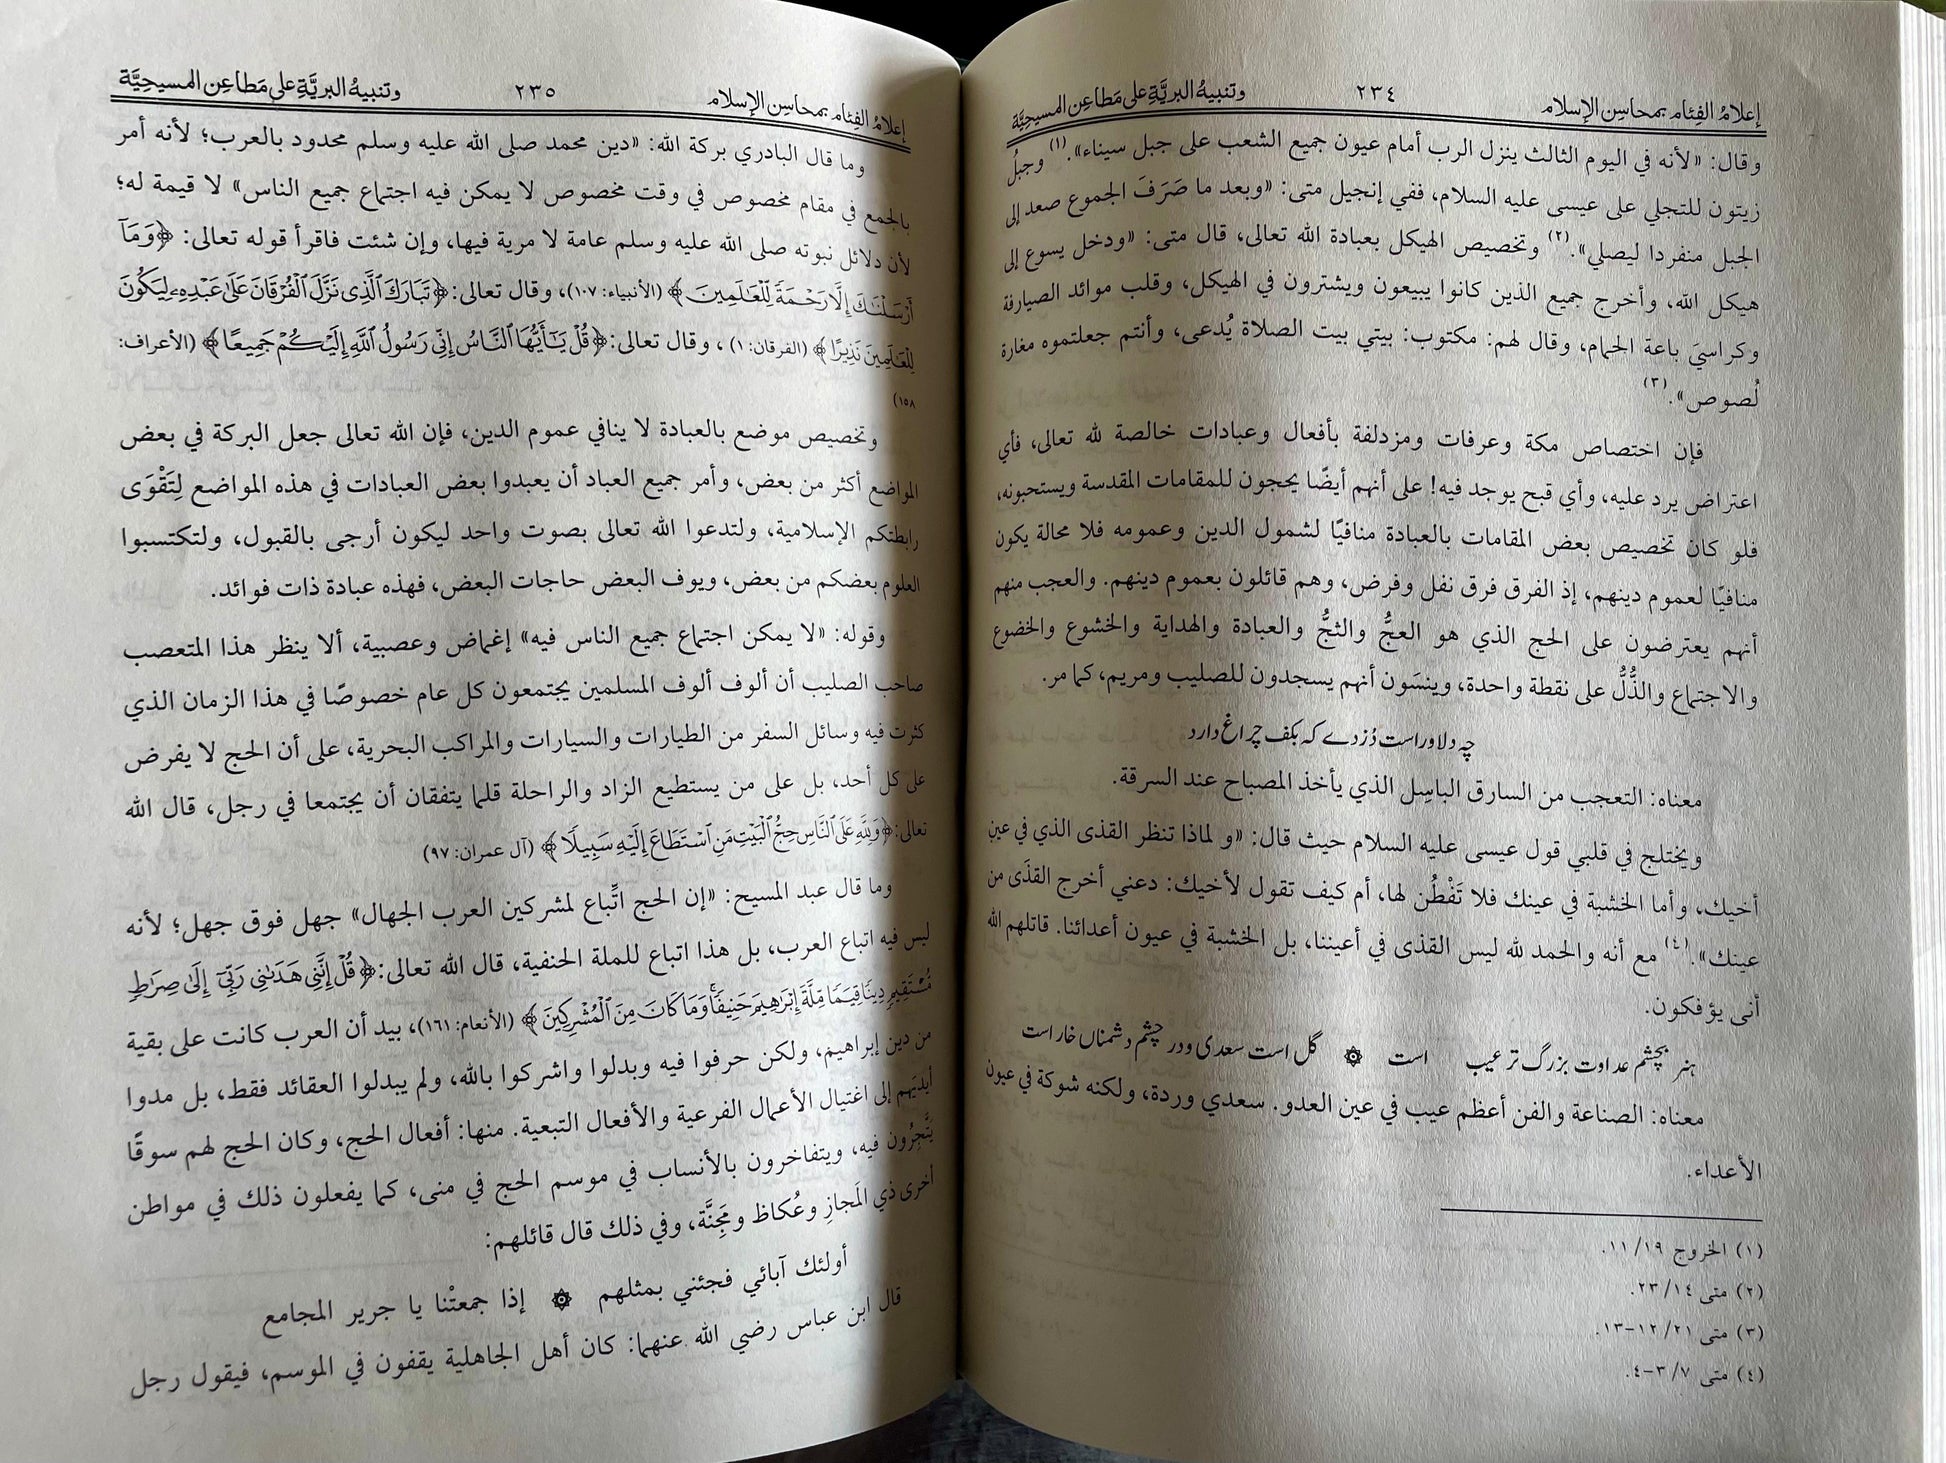 إعلامُ الفِئام بمحاسِن الإسلام ٢٣٤ وتنبيهُ البريَّةِ على مَطاعِن المسيحِيَّة
وقال: «لأنه في اليوم الثالث ينزل الرب أمام عيون جميع الشعب على جبل سيناء».(١) وجبلُ
زيتون للتجلي على عيسى عليه السلام، ففي إنجيل متى: «وبعد ما صَرَفَ الجموع صعد إلى
الجبل منفردا ليصلي».(٢) وتخصيص الهيكل بعبادة الله تعالى، قال متى: «ودخل يسوع إلى
هيكل الله، وأخرج جميع الذين كانوا يبيعون ويشترون في الهيكل، وقلب موائد الصيارفة
وكراسيَ باعة الحمام، وقال لهم: مكتوب: بيتي بيت الصلاة يُدعى، وأنتم جعلتموه مغارة
لُصوص».(٣)
فإن اختصاص مكة وعرفات ومزدلفة بأفعال وعبادات خالصة لله تعالى، فأي
اعتراض يرد عليه، وأي قبح يوجد فيه! على أنهم أيضًا يحجون للمقامات المقدسة ويستحبونه،
فلو كان تخصيص بعض المقامات بالعبادة منافيًا لشمول الدين وعمومه فلا محالة يكون
منافيًا لعموم دينهم، إذ الفرق فرق نفل وفرض، وهم قائلون بعموم دينهم. والعجب منهم
أنهم يعترضون على الحج الذي هو العجُّ والثجُّ والعبادة والهداية والخشوع والخضوع
والاجتماع والذُّلُّ على نقطة واحدة، وينسَون أنهم يسجدون للصليب ومريم، كما مر.
چه دلاوراست دُزدے که بکف چراغ دارد
معناه: التعجب من السارق الباسِل الذي يأخذ المصباح عند السرقة.
ويختلج في قلبي قول عيسى عليه السلام حيث قال: «و لماذا تنظر القذى الذي في عين
أخيك، وأما الخشبة في عينك فلا تَفْطُن لها، أم كيف تقول لأخيك: دعني أخرج القذَى من
عينك».(٤) مع أنه والحمد لله ليس القذى في أعيننا، بل الخشبة في عيون أعدائنا. قاتلهم الله
أنى يؤفكون.
ہنر بچشم عداوت بزرگ تر عیب است ۞ گل است سعدی ودر چشم دشمناں خار است
معناه: الصناعة والفن أعظم عيب في عين العدو. سعدي وردة، ولكنه شوكة في عيون
الأعداء.
(١) الخروج ١١/١٩.
(٢) متى ٢٣/١٤.
(٣) متى ١٢/٢١-١٣.
(٤) متى ٣/٧-٤.
إعلامُ الفِئام بمحاسِن الإسلام ٢٣٥ وتنبيهُ البريَّةِ على مَطاعِن المسيحِيَّة
وما قال البادري بركة الله: «دين محمد صلى الله عليه وسلم محدود بالعرب؛ لأنه أمر
بالجمع في مقام مخصوص في وقت مخصوص لا يمكن فيه اجتماع جميع الناس» لا قيمة له؛
لأن دلائل نبوته صلى الله عليه وسلم عامة لا مرية فيها، وإن شئت فاقرأ قوله تعالى: ﴿وَمَآ
أَرْسَلْنَٰكَ إِلَّا رَحْمَةً لِّلْعَٰلَمِينَ﴾ (الأنبياء: ١٠٧)، وقال تعالى: ﴿تَبَارَكَ ٱلَّذِى نَزَّلَ ٱلْفُرْقَانَ عَلَىٰ عَبْدِهِۦ لِيَكُونَ
لِلْعَٰلَمِينَ نَذِيرًا﴾ (الفرقان: ١)، وقال تعالى: ﴿قُلْ يَٰٓأَيُّهَا ٱلنَّاسُ إِنِّى رَسُولُ ٱللَّهِ إِلَيْكُمْ جَمِيعًا﴾ (الأعراف:
١٥٨)
وتخصيص موضع بالعبادة لا ينافي عموم الدين، فإن الله تعالى جعل البركة في بعض
المواضع أكثر من بعض، وأمر جميع العباد أن يعبدوا بعض العبادات في هذه المواضع لِتَقْوَى
رابطتكم الإسلامية، ولتدعوا الله تعالى بصوت واحد ليكون أرجى بالقبول، ولتكتسبوا
العلوم بعضكم من بعض، ويوف البعض حاجات البعض، فهذه عبادة ذات فوائد.
وقوله: «لا يمكن اجتماع جميع الناس فيه» إغماض وعصبية، ألا ينظر هذا المتعصب
صاحب الصليب أن ألوف ألوف المسلمين يجتمعون كل عام خصوصًا في هذا الزمان الذي
كثرت فيه وسائل السفر من الطيارات والسيارات والمراكب البحرية، على أن الحج لا يفرض
على كل أحد، بل على من يستطيع الزاد والراحلة قلما يتفقان أن يجتمعا في رجل، قال الله
تعالى: ﴿وَلِلَّهِ عَلَى ٱلنَّاسِ حِجُّ ٱلْبَيْتِ مَنِ ٱسْتَطَاعَ إِلَيْهِ سَبِيلًا﴾ (آل عمران: ٩٧)
وما قال عبد المسيح: «إن الحج اتِّباع لمشركين العرب الجهال» جهل فوق جهل؛ لأنه
ليس فيه اتباع العرب، بل هذا اتباع للملة الحنفية، قال الله تعالى: ﴿قُلْ إِنَّنِى هَدَىٰنِى رَبِّىٓ إِلَىٰ صِرَٰطٍ
مُّسْتَقِيمٍ دِينًا قِيَمًا مِّلَّةَ إِبْرَٰهِيمَ حَنِيفًا ۚ وَمَا كَانَ مِنَ ٱلْمُشْرِكِينَ﴾ (الأنعام: ١٦١)، بيد أن العرب كانت على بقية
من دين إبراهيم، ولكن حرفوا فيه وبدلوا واشركوا بالله، ولم يبدلوا العقائد فقط، بل مدوا
أيديَهم إلى اغتيال الأعمال الفرعية والأفعال التبعية. منها: أفعال الحج، وكان الحج لهم سوقًا
يَتَّجِرُون فيه، ويتفاخرون بالأنساب في موسم الحج في منى، كما يفعلون ذلك في مواطن
أخرى ذي المَجازِ وعُكاظ ومَجِنَّة، وفي ذلك قال قائلهم:
أولئك آبائي فجئني بمثلهم ۞ إذا جمعتْنا يا جرير المجامع
قال ابن عباس رضي الله عنهما: كان أهل الجاهلية يقفون في الموسم، فيقول رجل